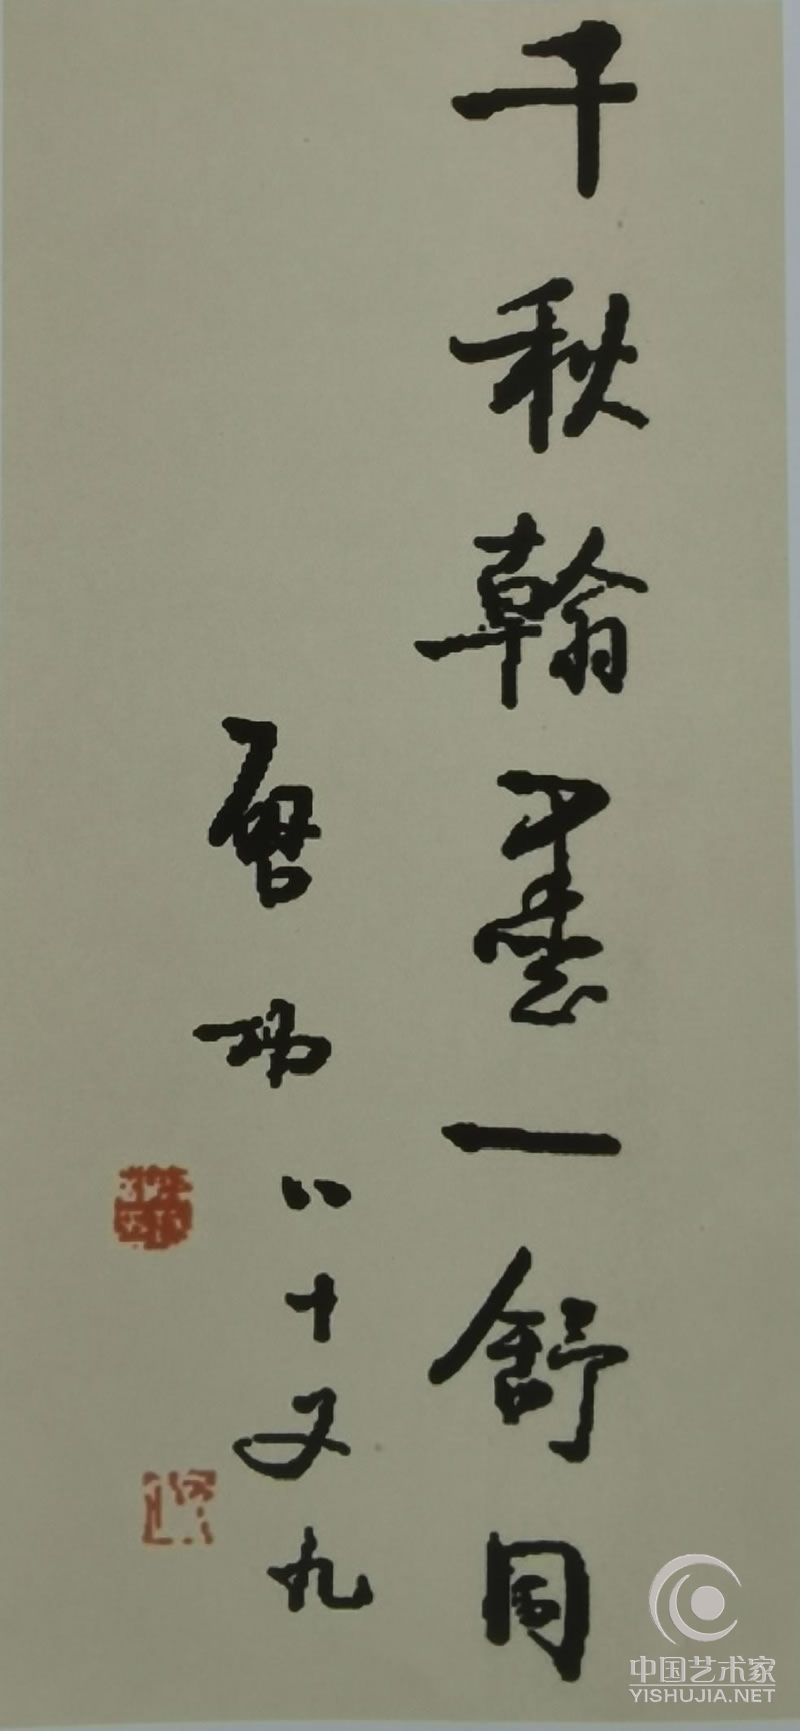 千秋翰墨一舒同
启功八十又九
中国艺术家
YISHUJIA.NET